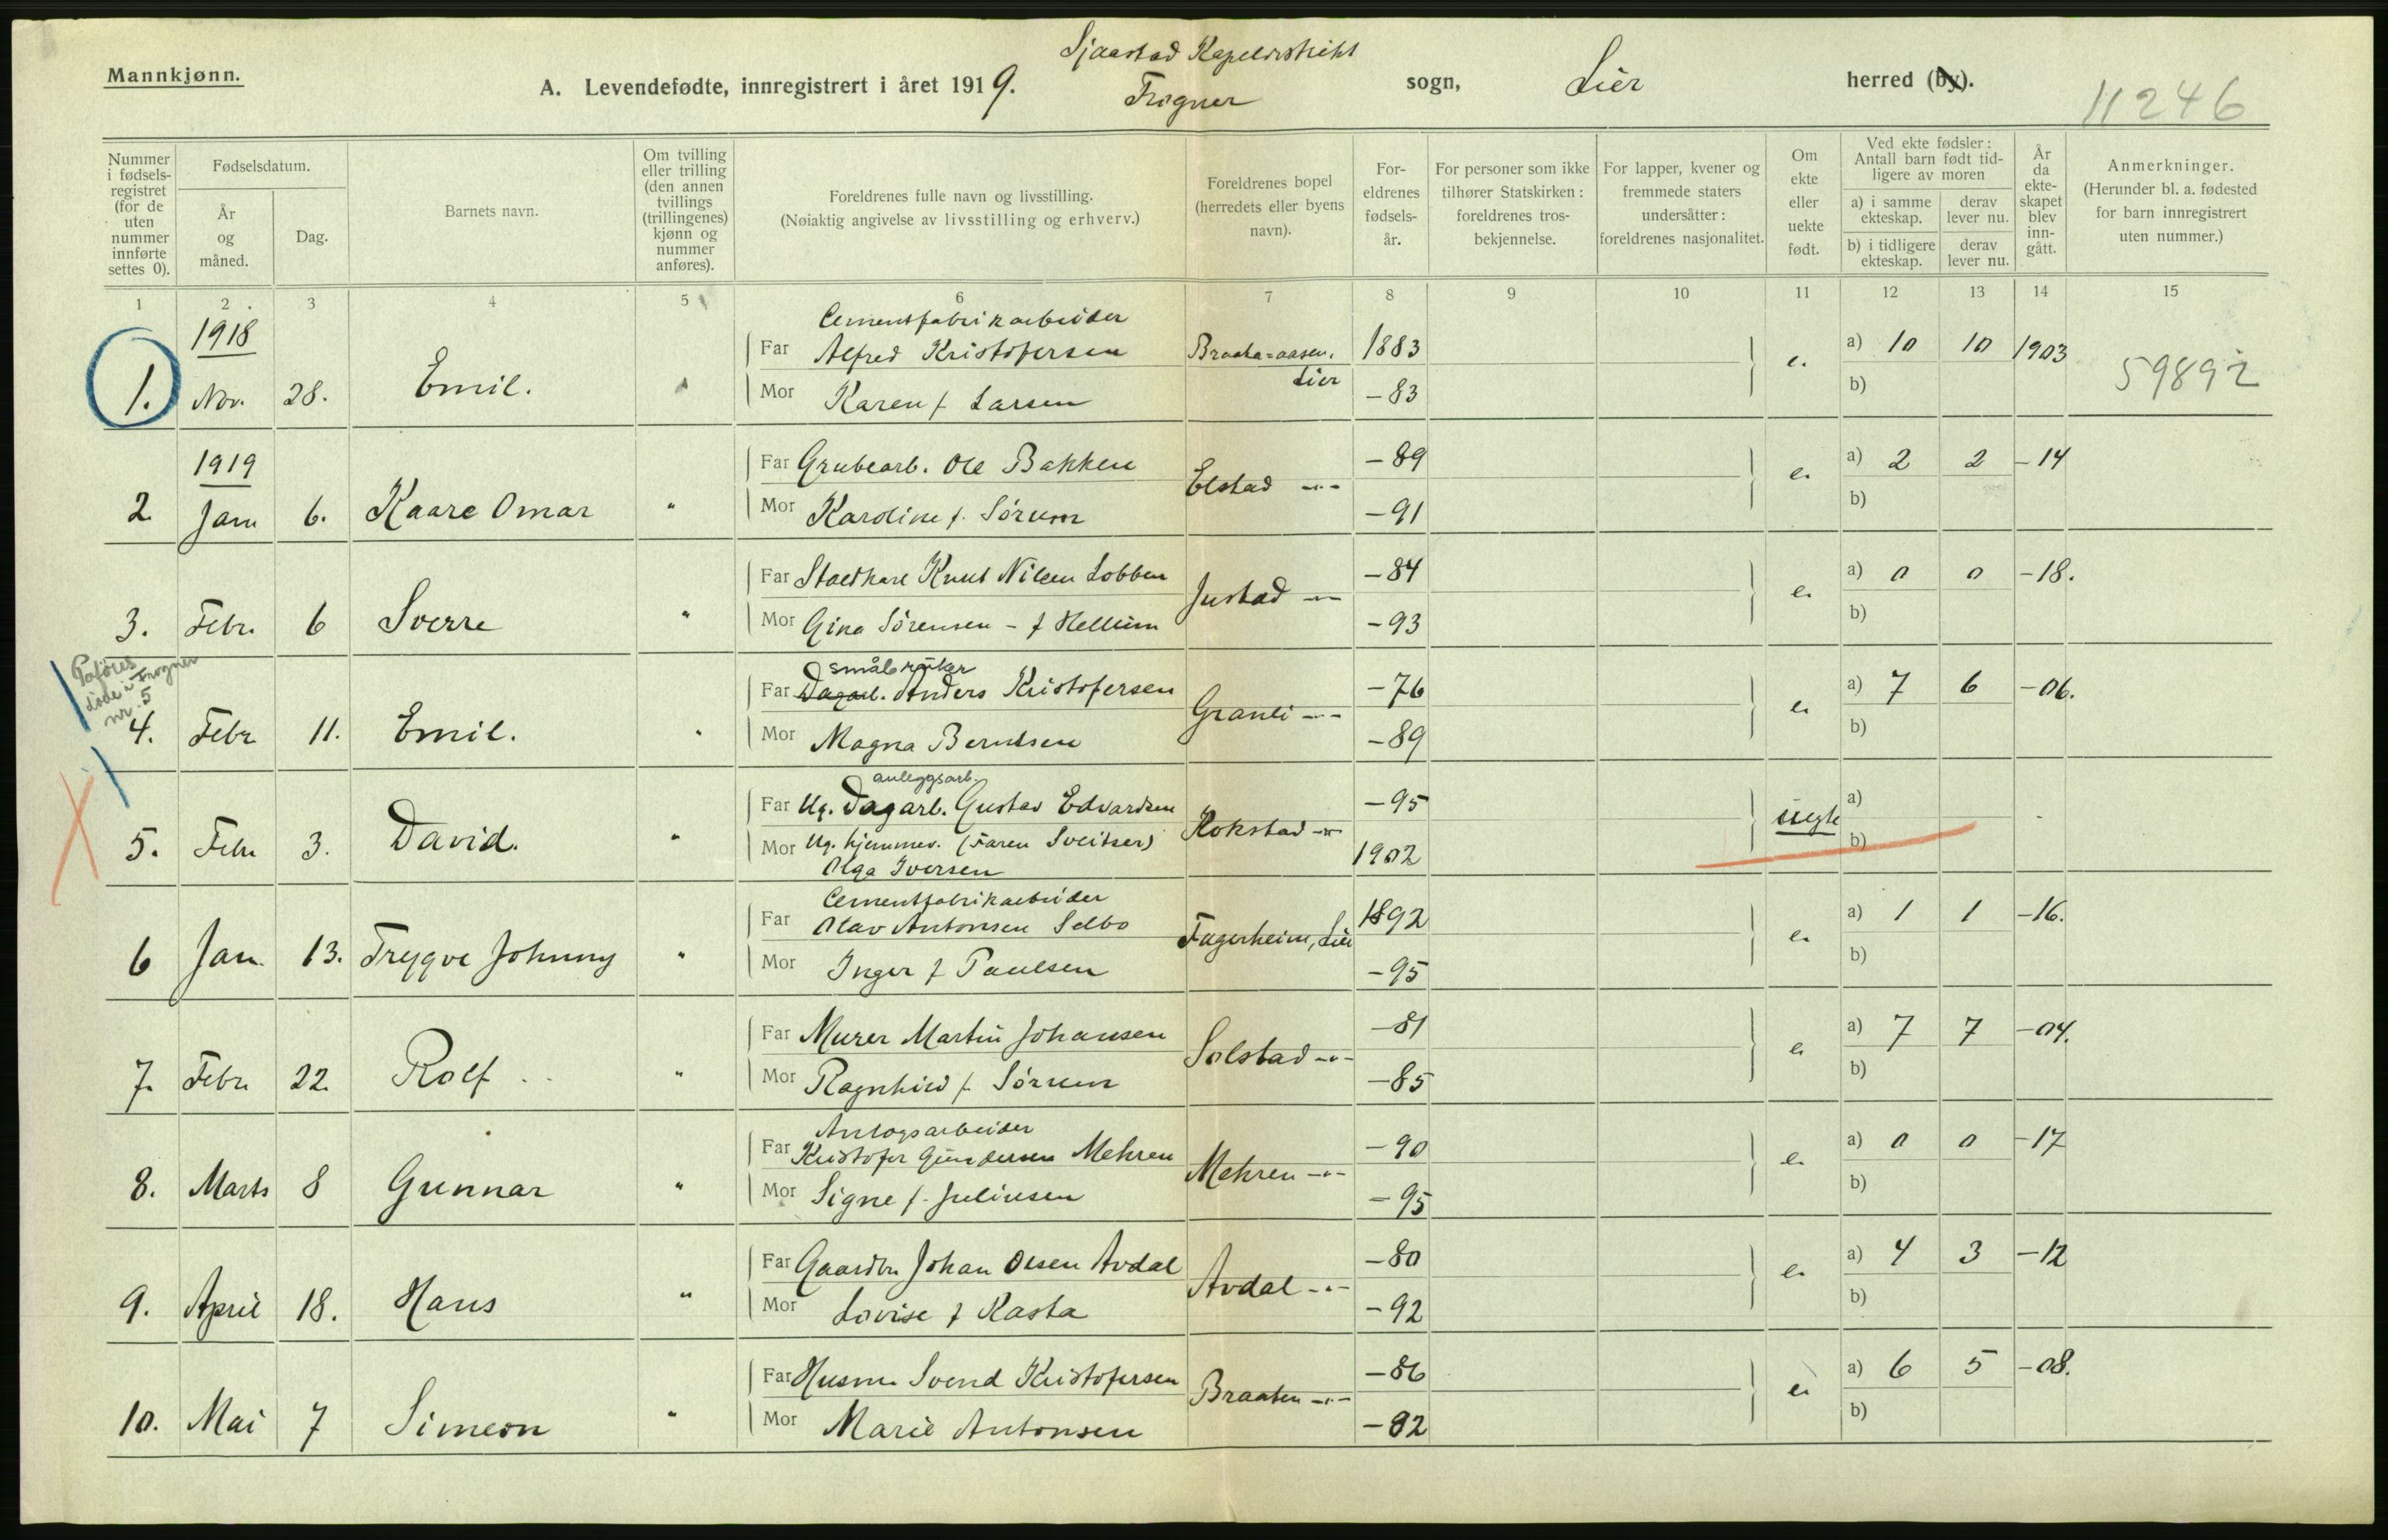 Mannkjønn.
Sjaastad Kapeldistrikt
A. Levendefødte, innregistrert i året 1919. Frogner sogn, Lier herred (by).
11246
Nummer i fødsels-registret (for de uten nummer innførte settes 0).
Fødselsdatum.
År og måned.
Dag.
Barnets navn.
Om tvilling eller trilling (den annen tvillings (trillingenes) kjønn og nummer anføres).
Foreldrenes fulle navn og livsstilling.
(Nøiaktig angivelse av livsstilling og erhverv.)
Foreldrenes bopel (herredets eller byens navn).
For-eldrenes fødsels-år.
For personer som ikke tilhører Statskirken: foreldrenes tros-bekjennelse.
For lapper, kvener og fremmede staters undersåtter: foreldrenes nasjonalitet.
Om ekte eller uekte født.
Ved ekte fødsler: Antall barn født tid-ligere av moren
a) i samme ekteskap.
derav lever nu.
b) i tidligere ekteskap.
derav lever nu.
År da ekte-skapet blev inn-gått.
Anmerkninger.
(Herunder bl. a. fødested for barn innregistrert uten nummer.)
1 2 3 4 5 6 7 8 9 10 11 12 13 14 15
1918
Cementfabrikarbeider
1. Nov. 28. Emil. Far Alfred Kristofersen Braata=aasen, Lier 1883 e. a) 10 10 1903 59892
Mor Karen f. Larsen -83 b)
1919
2. Jan 6. Kaare Omar " Far Grubearb. Ole Bakken Elstad -"- -89 e. a) 2 2 -14
Mor Karoline f. Sørum -91 b)
3. Febr. 6 Sverre " Far Staldkarl Knut Nilsen Lobben Justad -"- -84 e. a) 0 0 -18.
Mor Gina Sørensen - f Hellum -93 b)
Paføres døde i Frogner nr. 5
småbruker
4. Febr 11. Emil. " Far Dagarb. Anders Kristofersen Granli -"- -76 e. a) 7 6 -06.
Mor Magna Berntsen -89 b)
anleggsarb.
5. Febr 3. David. " Far Ug. Dagarb. Gustav Edvardsen Kokstad -"- -95 uegte a)
Mor Ug. hjemmev. (Faren Sveitser) 1902 b)
Olga Iversen
Cementfabrikarbeider
6 Jan. 13. Trygve Johnny " Far Olav Antonsen Selbo Fagerheim, Lier 1892 e. a) 1 1 -16.
Mor Inger f Paulsen -95 b)
7. Febr 22. Rolf " Far Murer Martin Johansen Solstad -"- -81 e. a) 7 7 -04.
Mor Ragnhild f. Sørum -85 b)
Anlægsarbeider
8. Marts 8 Gunnar " Far Kristofer Gundersen Mehren Mehren -"- -90 e. a) 0 0 -17
Mor Signe f. Juliusen -95 b)
9. April 18. Hans " Far Gaardbr Johan Olsen Avdal Avdal -"- -80 e. a) 4 3 -12
Mor Lovise f Kasta -92 b)
10. Mai 7 Simeon " Far Husm. Svend Kristofersen Braaten -"- -86 e. a) 6 5 -08.
Mor Marie Antonsen -82 b)